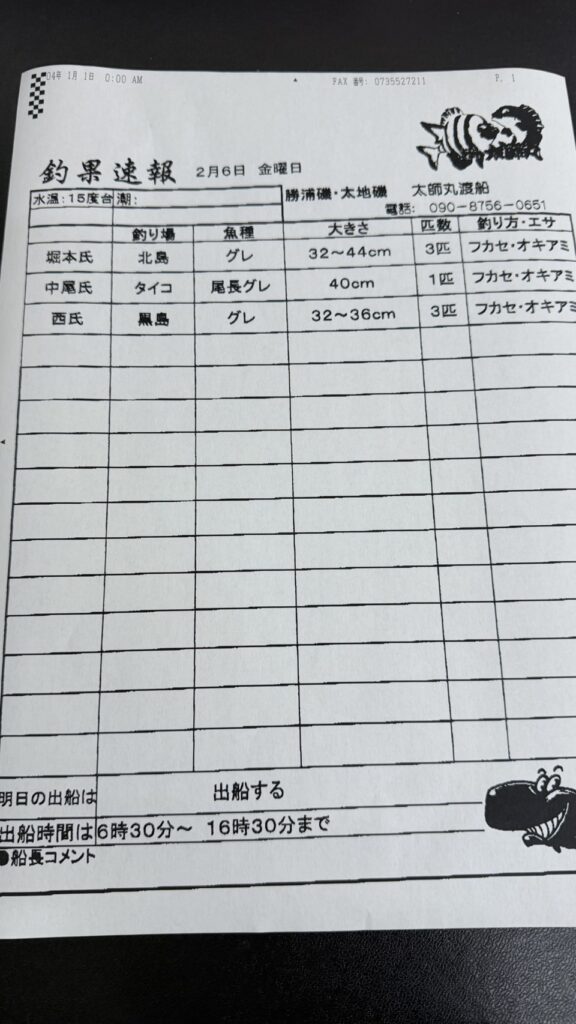 04年 1月 1日 0:00 AM FAX 番号: 0735527211 P. 1
釣果速報 2月6日 金曜日
水温:15度台 潮: 勝浦磯・太地磯 太師丸渡船
電話: 090-8756-0651
釣り場 魚種 大きさ 匹数 釣り方・エサ
堀本氏 北島 グレ 32～44cm 3匹 フカセ・オキアミ
中尾氏 タイコ 尾長グレ 40cm 1匹 フカセ・オキアミ
西氏 黒島 グレ 32～36cm 3匹 フカセ・オキアミ
明日の出船は 出船する
出船時間は 6時30分～ 16時30分まで
●船長コメント